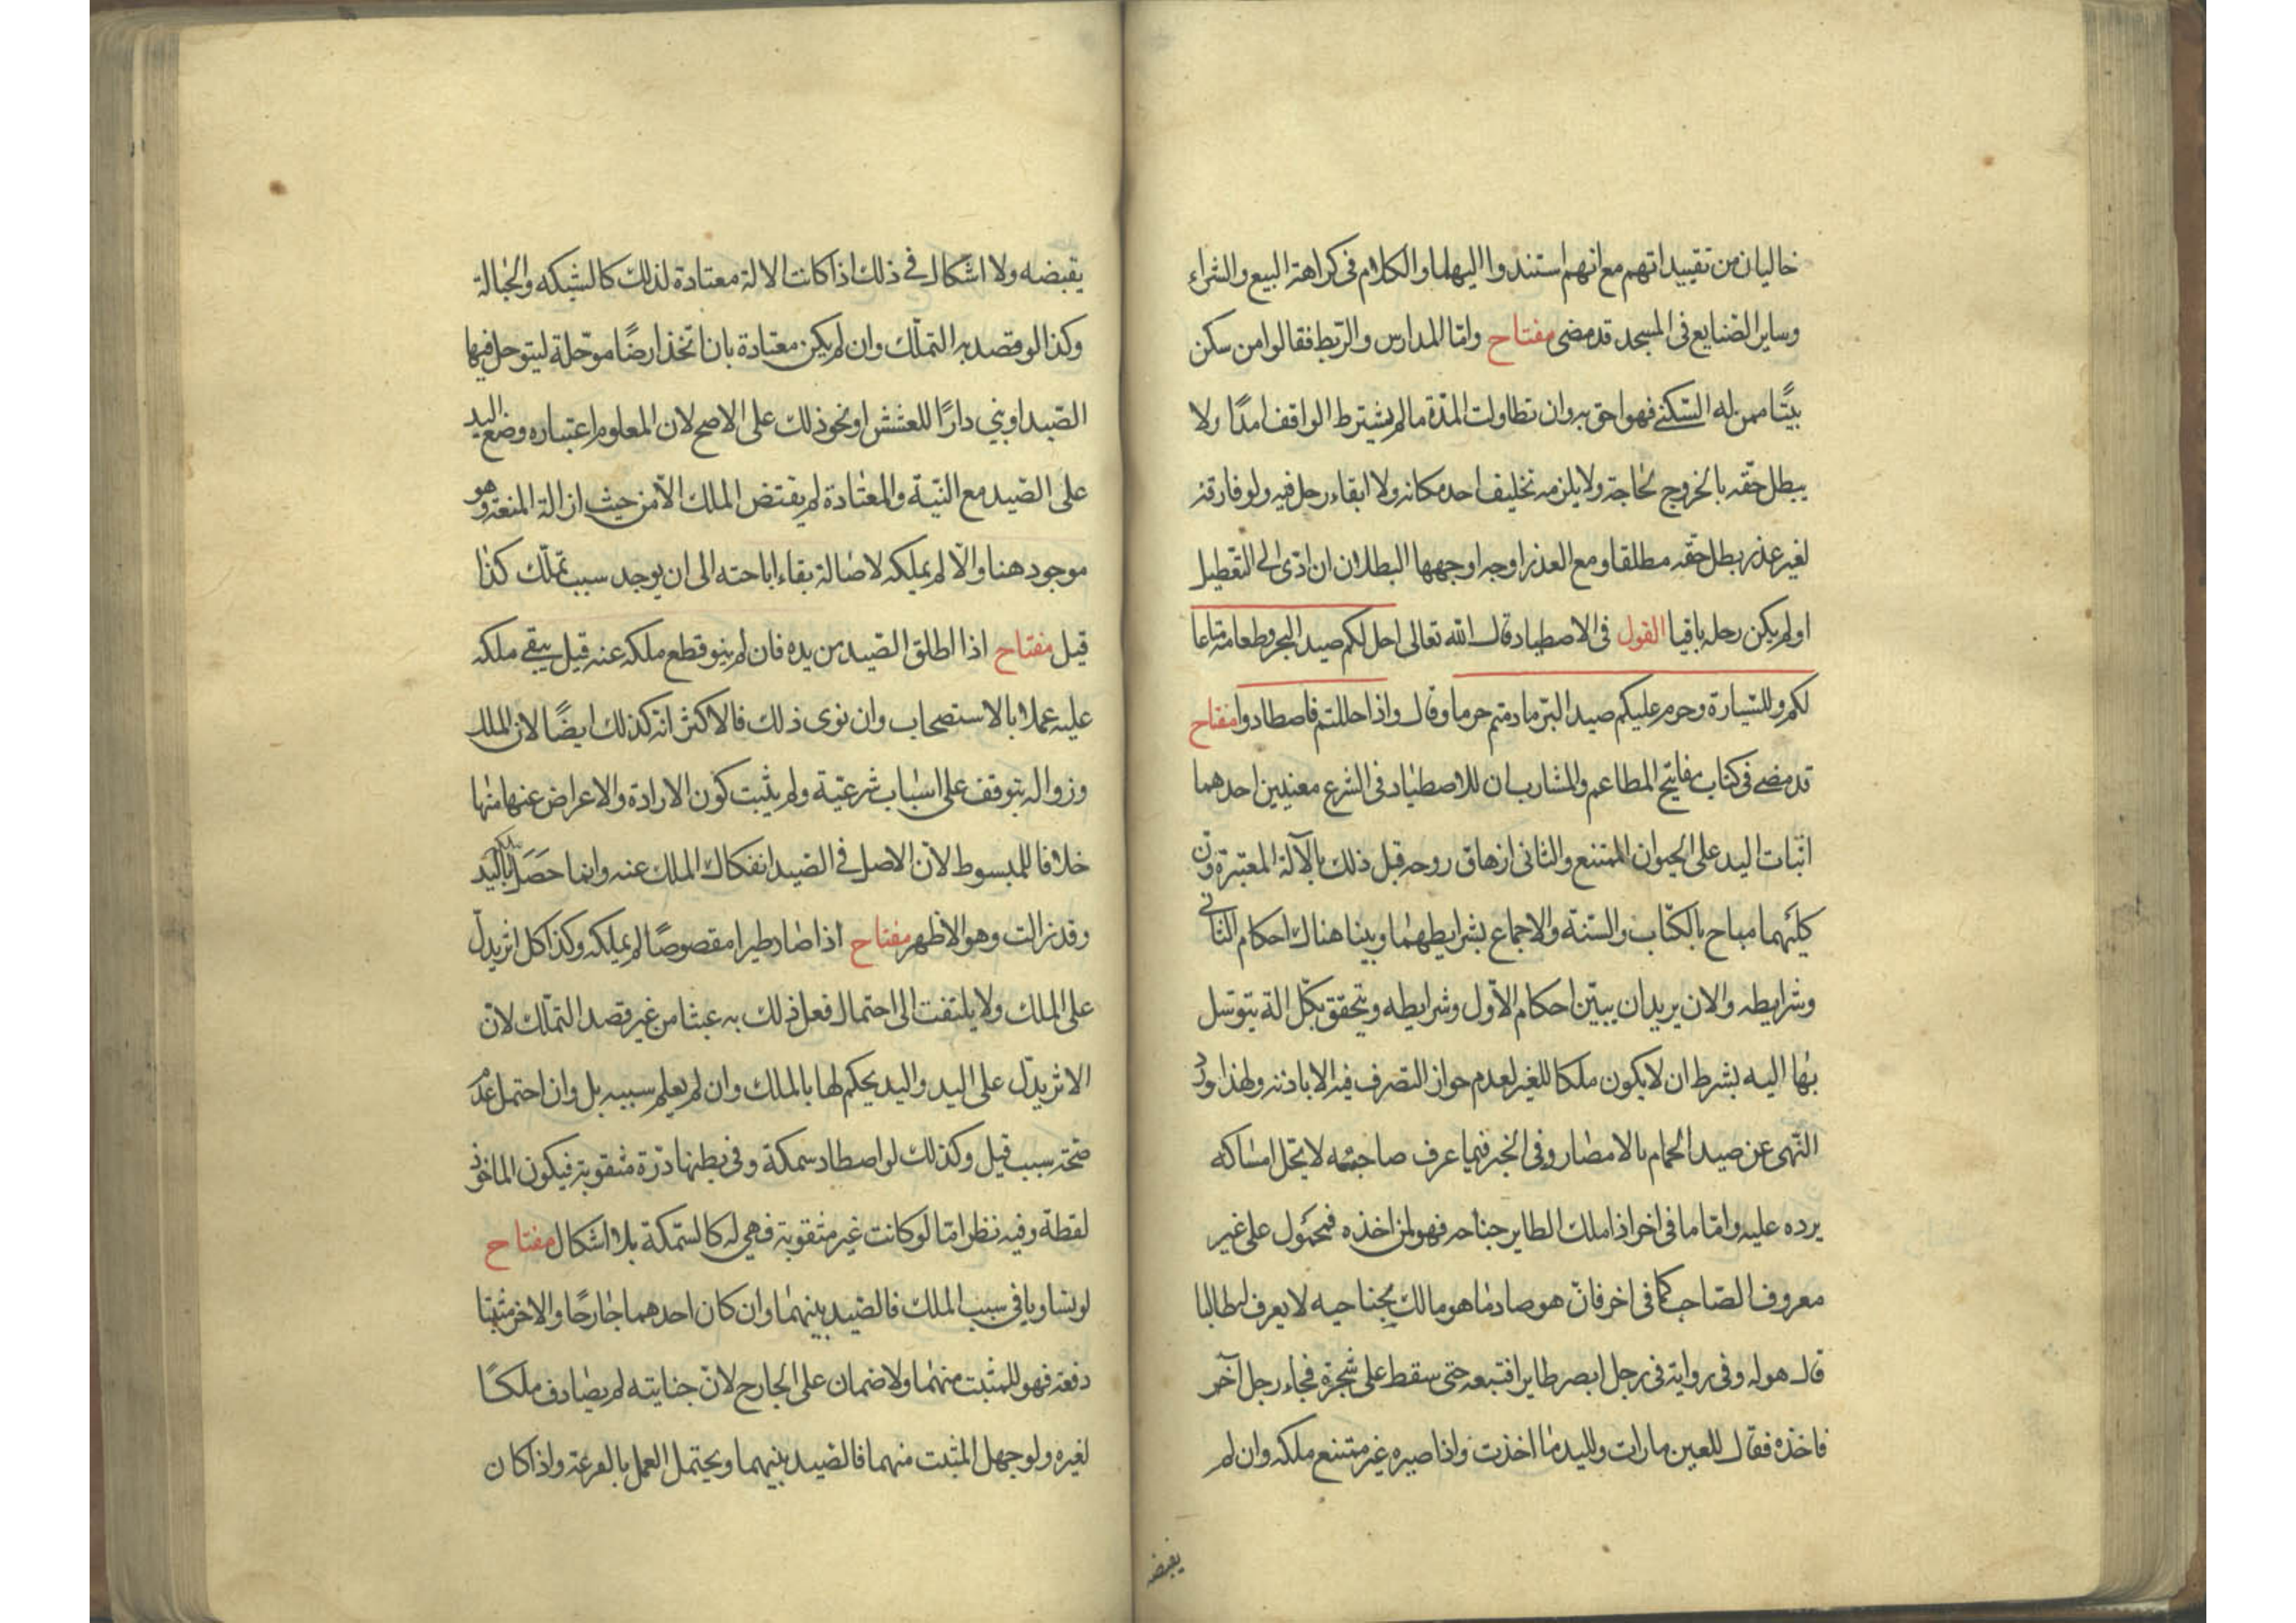 خاليان من تقييداتهم مع انهم استندوا اليهما والكلام فى كراهة البيع والشراء
وساير الصنايع فى المسجد قد مضى مفتاح وامّا المدارس والربط فقالوا من سكن
بيتًا ممن له السّكنى فهو احق به وان تطاولت المدّة ما لم يشترط الواقف امدًا ولا
يبطل حقّه بالخروج لحاجة ولا يلزمه تخليف احد مكانه ولا ابقاء رحل فيه ولو فارقه
لغير عذر بطل حقّه مطلقا ومع العذر اوجه اوجهها البطلان ان ادّى الى التعطيل
او لم يكن رحله باقيا القول فى الاصطياد قال الله تعالى احل لكم صيد البحر وطعامه متاعا
لكم وللسّيارة وحرم عليكم صيد البرّ ما دمتم حرما وقال واذا حللتم فاصطادوا مفتاح
قد مضى فى كتاب مفاتيح المطاعم والمشارب ان للاصطياد فى الشرع معنيين احدهما
اثبات اليد على الحيوان الممتنع والثانى ازهاق روحه قبل ذلك بالآلة المعتبرة وان
كليهما مباح بالكتاب والسنّة والاجماع بشرايطهما وبينا هناك احكام الثانى
وشرايطه والان يريد ان يبيّن احكام الاوّل وشرايطه ويتحقق بكل الة يتوسل
بها اليه بشرط ان لا يكون ملكا للغير لعدم جواز التصرف فيه الا باذنه ولهذا ورد
النّهى عن صيد الحمام بالامصار وفى الخبر فيما عرف صاحبه لا يحل امساكه
يرده عليه وامّا ما فى اخر اذا ملك الطاير جناحه فهو لمن اخذه فمحمول على غير
معروف الصّاحب كما فى اخر فان هو صاد ما هو مالك بجناحيه لا يعرف له طالبا
قال هو له وفى رواية فى رجل ابصر طايرا فتبعه حتى سقط على شجرة فجاء رجل آخر
فاخذه فقال للعين ما رات ولليد ما اخذت واذا صيره غير ممتنع ملكه وان لم
يقبضه
يقبضه ولا اشكال فى ذلك اذا كانت الالة معتادة لذلك كالشبكه والحبالة
وكذا لو قصد به التملّك وان لم يكن معتادة بان اتخذ ارضًا موحّلة ليتوحل فيها
الصّيد او بنى دارًا للعشش او نحو ذلك على الاصح لان المعلوم اعتباره وضع اليد
على الصيد مع النيّة والمعتادة لم يقتض الملك الّا من حيث ازالة المنعة وهو
موجود هنا والّا لم يملكه لاصالة بقاء اباحته الى ان يوجد سبب تملّك كذا
قيل مفتاح اذا اطلق الصّيد من يده فان لم ينو قطع ملكه عنه قيل يبقى ملكه
عليه عملا بالاستصحاب وان نوى ذلك فالاكثر انّه كذلك ايضًا لان الملك
وزواله يتوقف على اسباب شرعيّة ولم يثبت كون الارادة والاعراض عنها منها
خلافا للمبسوط لانّ الاصل فى الصّيد انفكاك الملك عنه وانما حصل باليد
وقد زالت وهو الاظهر مفتاح اذا صاد طيرا مقصوصًا لم يملكه وكذا كل اثر يدلّ
على الملك ولا يلتفت الى احتمال فعل ذلك به عبثا من غير قصد التملّك لانّ
الاثر يدلّ على اليد واليد يحكم لها بالملك وان لم يعلم سببه بل وان احتمل عدم
صحّة سبب قيل وكذلك لو اصطاد سمكة وفى بطنها درّة مثقوبة فيكون الماخوذ
لقطة وفيه نظر امّا لو كانت غير مثقوبة فهى له كالسّمكة بلا اشكال مفتاح
لو تساويا فى سبب الملك فالصّيد بينهما وان كان احدهما جارحًا والاخر مثبتا
دفعة فهو للمثبت منهما ولا ضمان على الجارح لانّ جنايته لم يصادف ملكًا
لغيره ولو جهل المثبت منهما فالصّيد بينهما ويحتمل العمل بالقرعة واذا كان